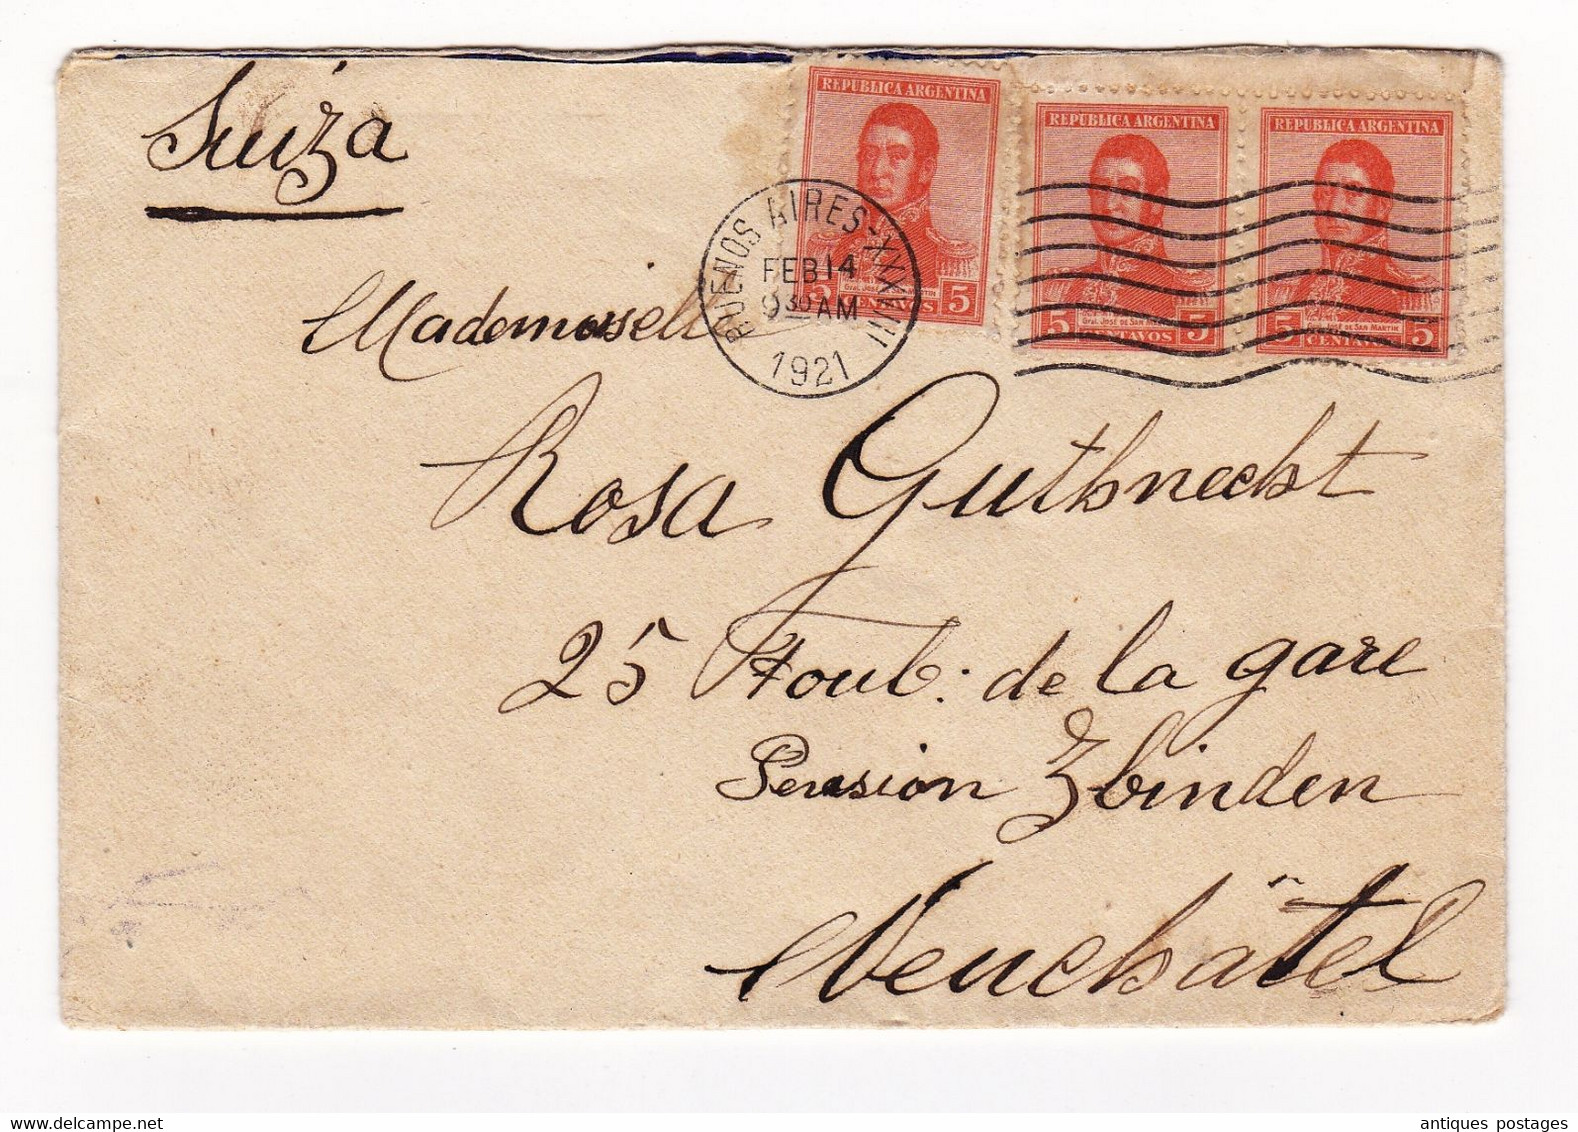 Suiza
REPUBLICA ARGENTINA
5 Gral. José de San Martín 5
CENTAVOS
REPUBLICA ARGENTINA
5 Gral. José de San Martín 5
CENTAVOS
REPUBLICA ARGENTINA
5 de San Martín 5
CENTAVOS
BUENOS AIRES-
FEB 14
9 30 AM
1921
Mademoiselle
Rosa Gutknecht
25 Foub: de la gare
Pension Zbinden
Neuchâtel
antiques postages